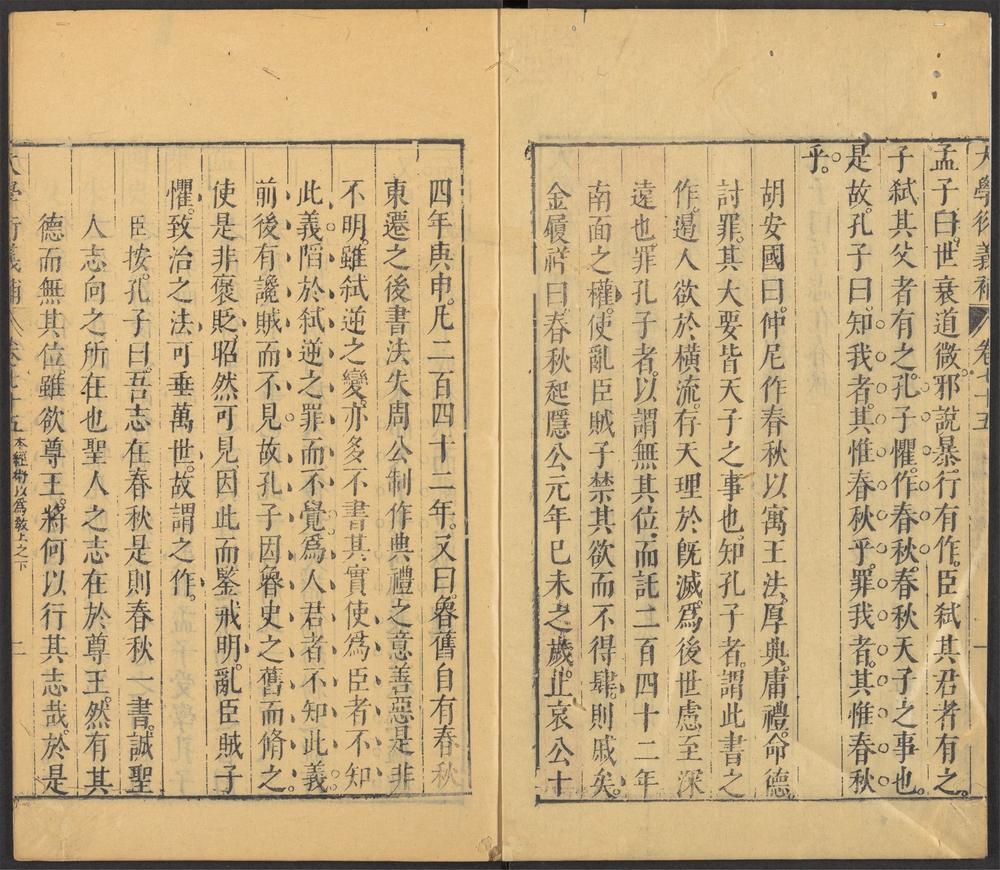 大學衍義補 卷七十五 一
孟子曰。世衰道微。邪說暴行有作。臣弑其君者有之。
子弑其父者有之。孔子懼。作春秋。春秋天子之事也。
是故。孔子曰。知我者。其惟春秋乎。罪我者。其惟春秋
乎。
胡安國曰。仲尼作春秋以寓王法。厚典。庸禮。命德。
討罪。其大要皆天子之事也。知孔子者。謂此書之
作。遏人欲於橫流。存天理於旣滅。爲後世慮至深
遠也。罪孔子者。以謂無其位。而託二百四十二年
南面之權。使亂臣賊子禁其欲而不得肆。則戚矣。
金履祥曰。春秋起隱公元年巳未之歲。止哀公十
四年庚申。凡二百四十二年。又曰。魯舊自有春秋
東遷之後書法失周公制作典禮之意善惡是非
不明。雖弑逆之變。亦多不書其實使爲臣者不知
此義。陷於弑逆之罪而不覺。爲人君者不知此義。
前後有讒賊而不見。故孔子因魯史之舊而脩之。
使是非褒貶昭然可見。因此而鑒戒明。亂臣賊子
懼。致治之法可垂萬世。故謂之作。
臣按孔子曰。吾志在春秋是則春秋一書。誠聖
人志向之所在也聖人之志在於尊王。然有其
德而無其位。雖欲尊王。將何以行其志哉。於是
大學衍義補 卷七十五 本經術以爲敎上之下 二